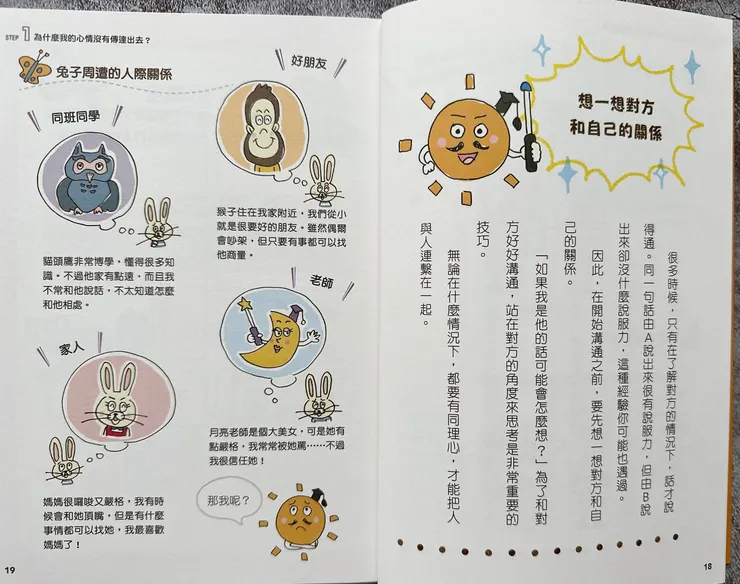 想一想對方
和自己的關係
很多時候，只有在了解對方的情況下，話才說
得通。同一句話由A說出來很有說服力，但由B說
出來卻沒什麼說服力，這種經驗你可能也遇過。
因此，在開始溝通之前，要先想一想對方和自
己的關係。
「如果我是他的話可能會怎麼想？」為了和對
方好好溝通，站在對方的角度來思考是非常重要的
技巧。
無論在什麼情況下，都要有同理心，才能把人
與人連繫在一起。
18
STEP 1 為什麼我的心情沒有傳達出去？
兔子周遭的人際關係
好朋友
猴子住在我家附近，我們從小
就是很要好的朋友。雖然偶爾
會吵架，但只要有事都可以找
他商量。
同班同學
貓頭鷹非常博學、懂得很多知
識。不過他家有點遠，而且我
不常和他說話，不太知道怎麼
和他相處。
老師
月亮老師是個大美女，可是她有
點嚴格，我常常被她罵……不過
我很信任她！
家人
媽媽很囉唆又嚴格，我有時
候會和她頂嘴，但是有什麼
事情都可以找她，我最喜歡
媽媽了！
那我呢？
19